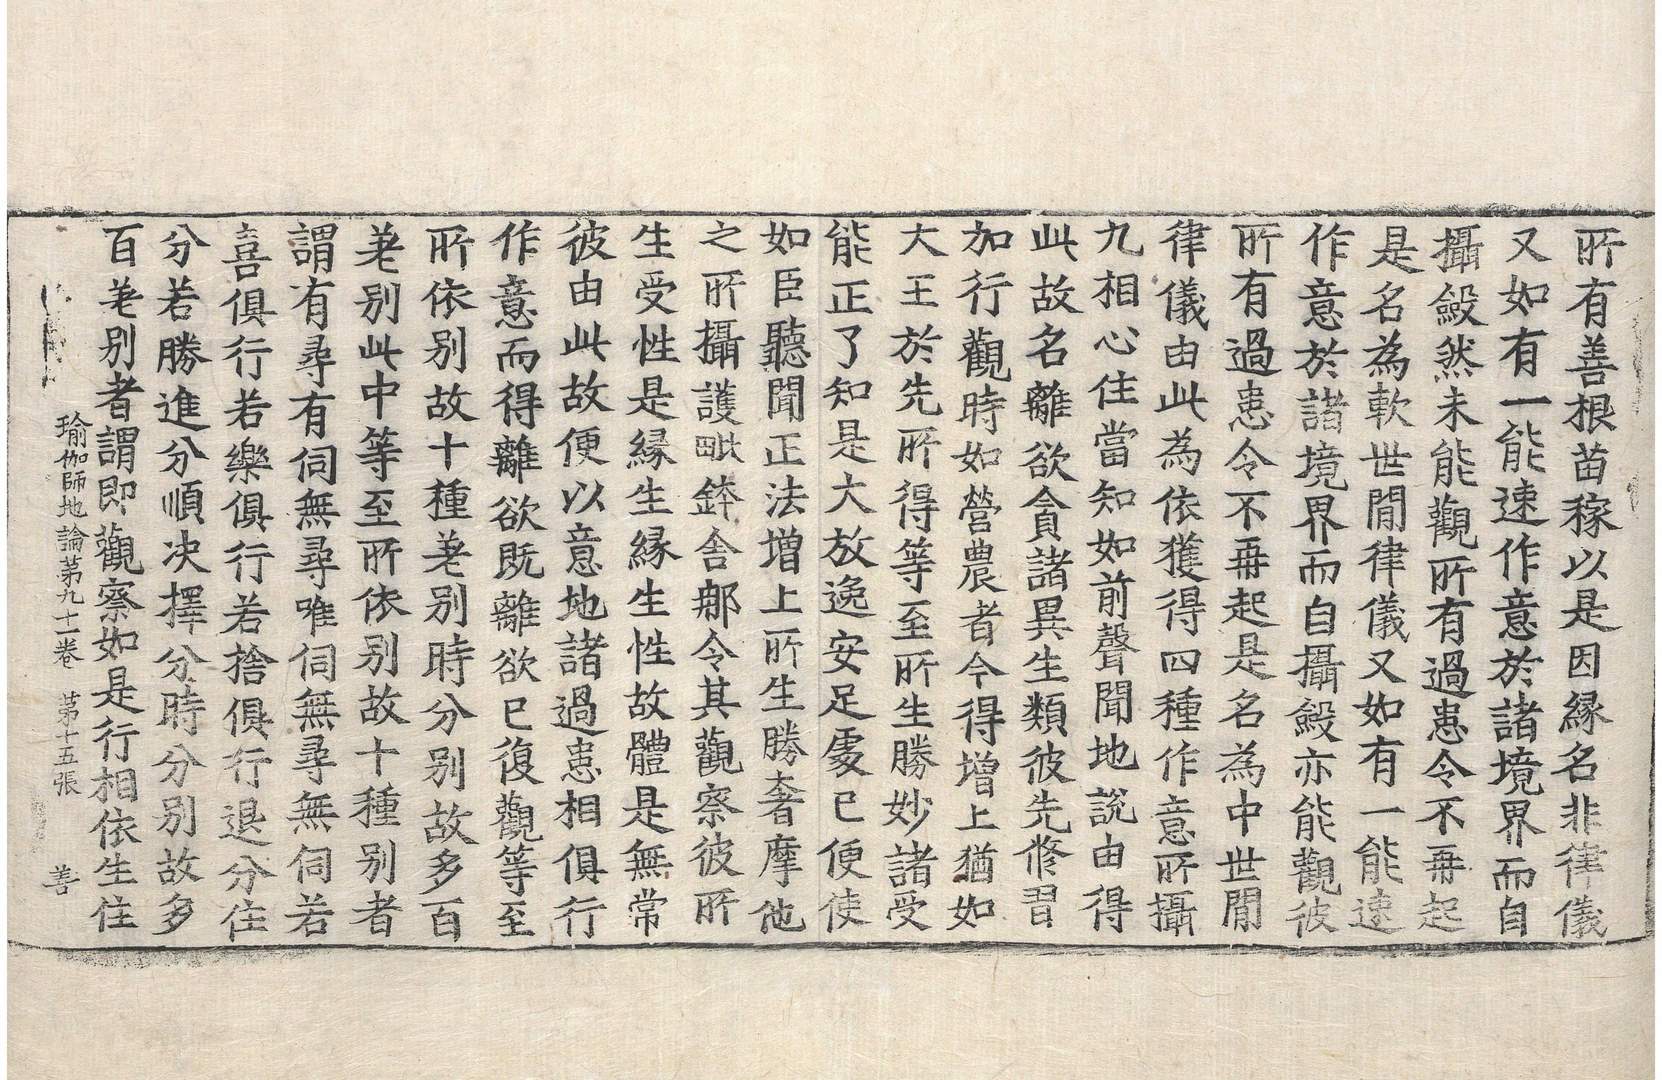 所有善根苗稼以是因緣名非律儀
又如有一能速作意於諸境界而自
攝斂然未能觀所有過患令不再起
是名為軟世間律儀又如有一能速
作意於諸境界而自攝斂亦能觀彼
所有過患令不再起是名為中世間
律儀由此為依獲得四種作意所攝
九相心住當知如前聲聞地說由得
此故名離欲貪諸異生類彼先修習
加行觀時如營農者今得增上猶如
大王於先所得等至所生勝妙諸受
能正了知是大放逸安足處已便使
如臣聽聞正法增上所生勝奢摩他
之所攝護毗鉢舍那令其觀察彼所
生受性是緣生緣生性故體是無常
彼由此故便以意地諸過患相俱行
作意而得離欲既離欲已復觀等至
所依別故十種差別時分別故多百
差別此中等至所依別故十種別者
謂有尋有伺無尋唯伺無尋無伺若
喜俱行若樂俱行若捨俱行退分住
分若勝進分順决擇分時分別故多
百差別者謂即觀察如是行相依生住
瑜伽師地論第九十一卷 第十五張 善